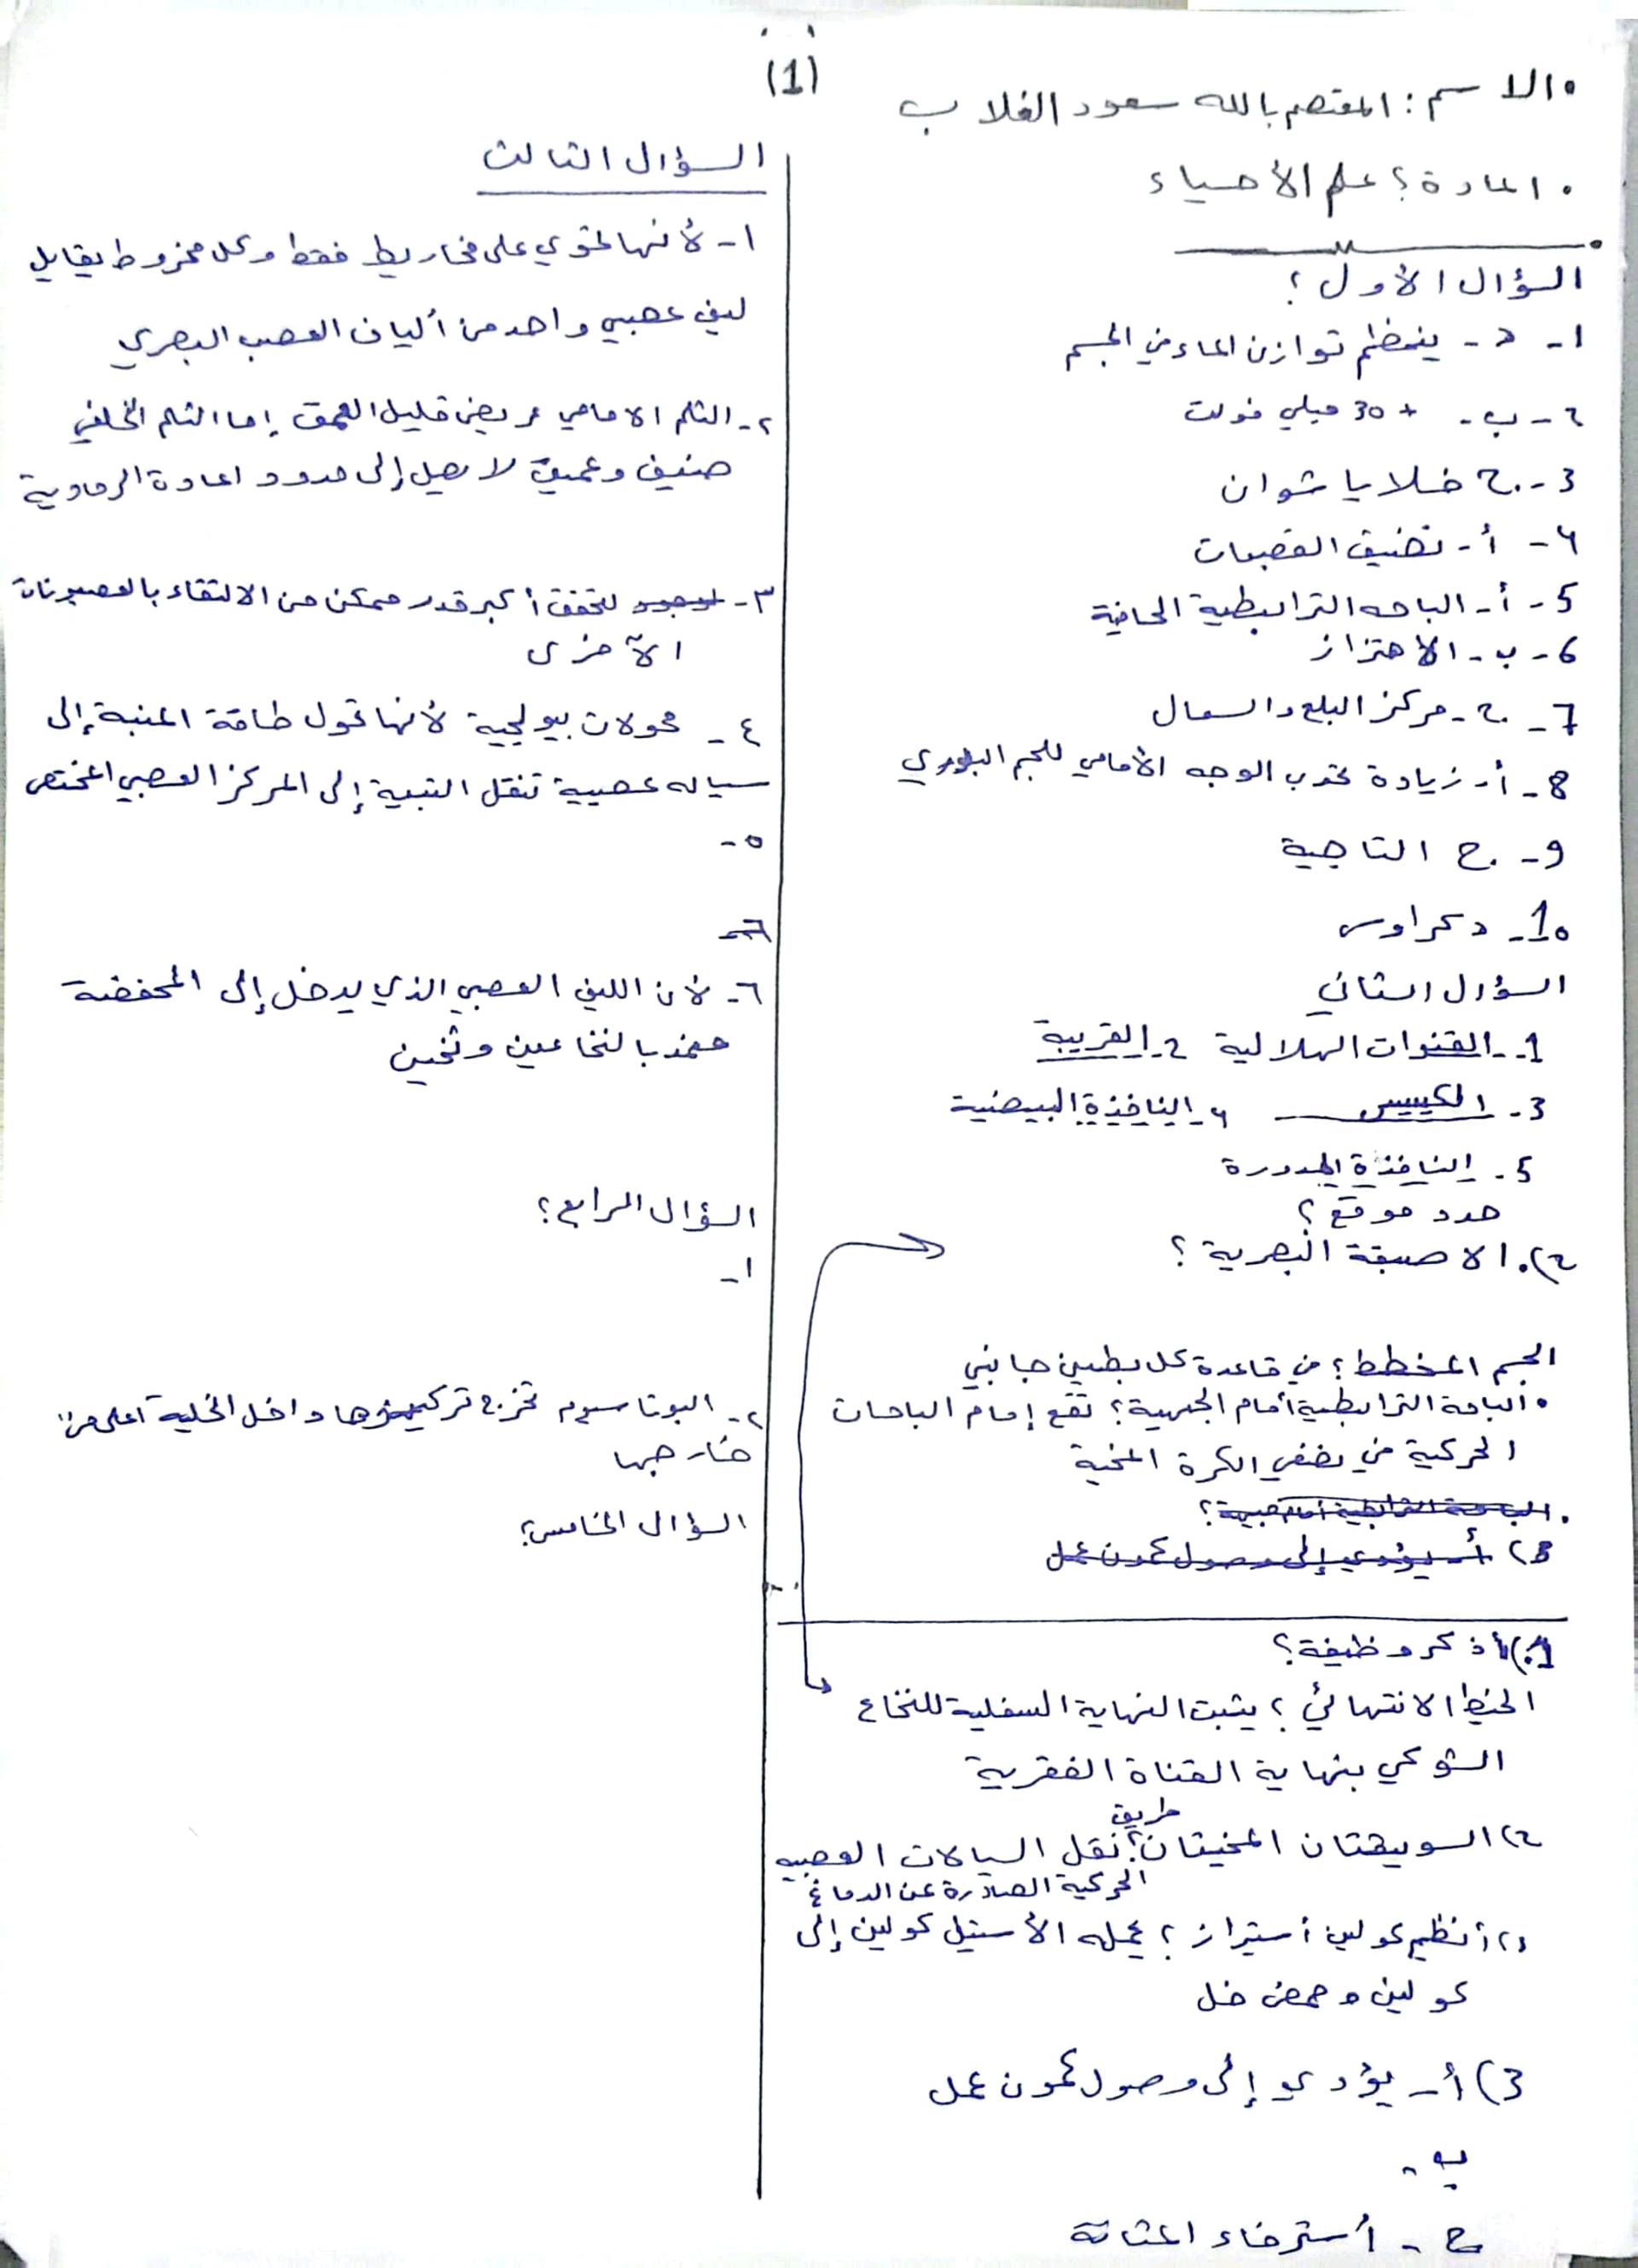 (1)
الاسم: المعتصم بالله سعود الغلاب
المادة؟ علم الأحياء
السؤال الأول؟
1- د- ينظم توازن الماء في الجسم
٢- ب- +30 ميلي فولت
3- ج. خلايا شوان
٤- أ- تضيق القصبات
5- أ- الباحه الترابطية الحافية
6- ب- الاهتزاز
7- ج- مركز البلع والسعال
8- أ- زيادة تحدب الوجه الأمامي للجسم البلوري
9- ج. التاجية
10- د كراوس
السؤال الثاني
1- القنوات الهلالية 2- القريبة
3- الكييس ٤- النافذة البيضية
5- النافذة المدورة
حدد موقع؟
٢). الاصبغة البصرية؟
الجسم المخطط؟ في قاعدة كل بطين جانبي
الباحة الترابطية أمام الجبهية؟ تقع إمام الباحات
الحركية في نصفي الكرة المخية
الباحة الترابطية أمام جبهية؟
3) أ- يؤدي إلى وصول كمون عمل
1.) أذكر وظيفة؟
الخيط الانتهائي؟ يثبت النهاية السفلية للنخاع
الشوكي بنهاية القناة الفقرية
٢) السويقتان المخيتان؟ طريق نقل السيالات العصبيه
الحركية الصادرة عن الدماغ
٢) أنظيم كولين أستيراز؟ يحلمه الأستيل كولين إلى
كولين وحمض خل
3) أ- يؤدي إلى وصول كمون عمل
ب-
ج - أسترخاء المثانة
السؤال الثالث
١- لأنها تحوي على مخاريط فقط وكل مخروط يقابل
ليف عصبي واحد من ألياف العصب البصري
٢- الثلم الامامي عريض قليل العمق إما الثلم الخلفي
ضيق وعميق لا يصل إلى حدود المادة الرمادية
٣- لتحقق أكبر قدر ممكن من الالتقاء بالعصبونات
الآخرى
٤- محولات بيولجية لأنها تحول طاقة المنبة إلى
سياله عصبية تنقل التنبية إلى المركز العصبي المختص
٥-
٦-
٦- لأن الليف العصبي الذي يدخل إلى المحفضة
مغمد بالنخاعين وثخين
السؤال الرابع؟
١-
٢- البوتاسيوم تخرج تركيزها داخل الخلية أعلى من
خارجها
السؤال الخامس؟